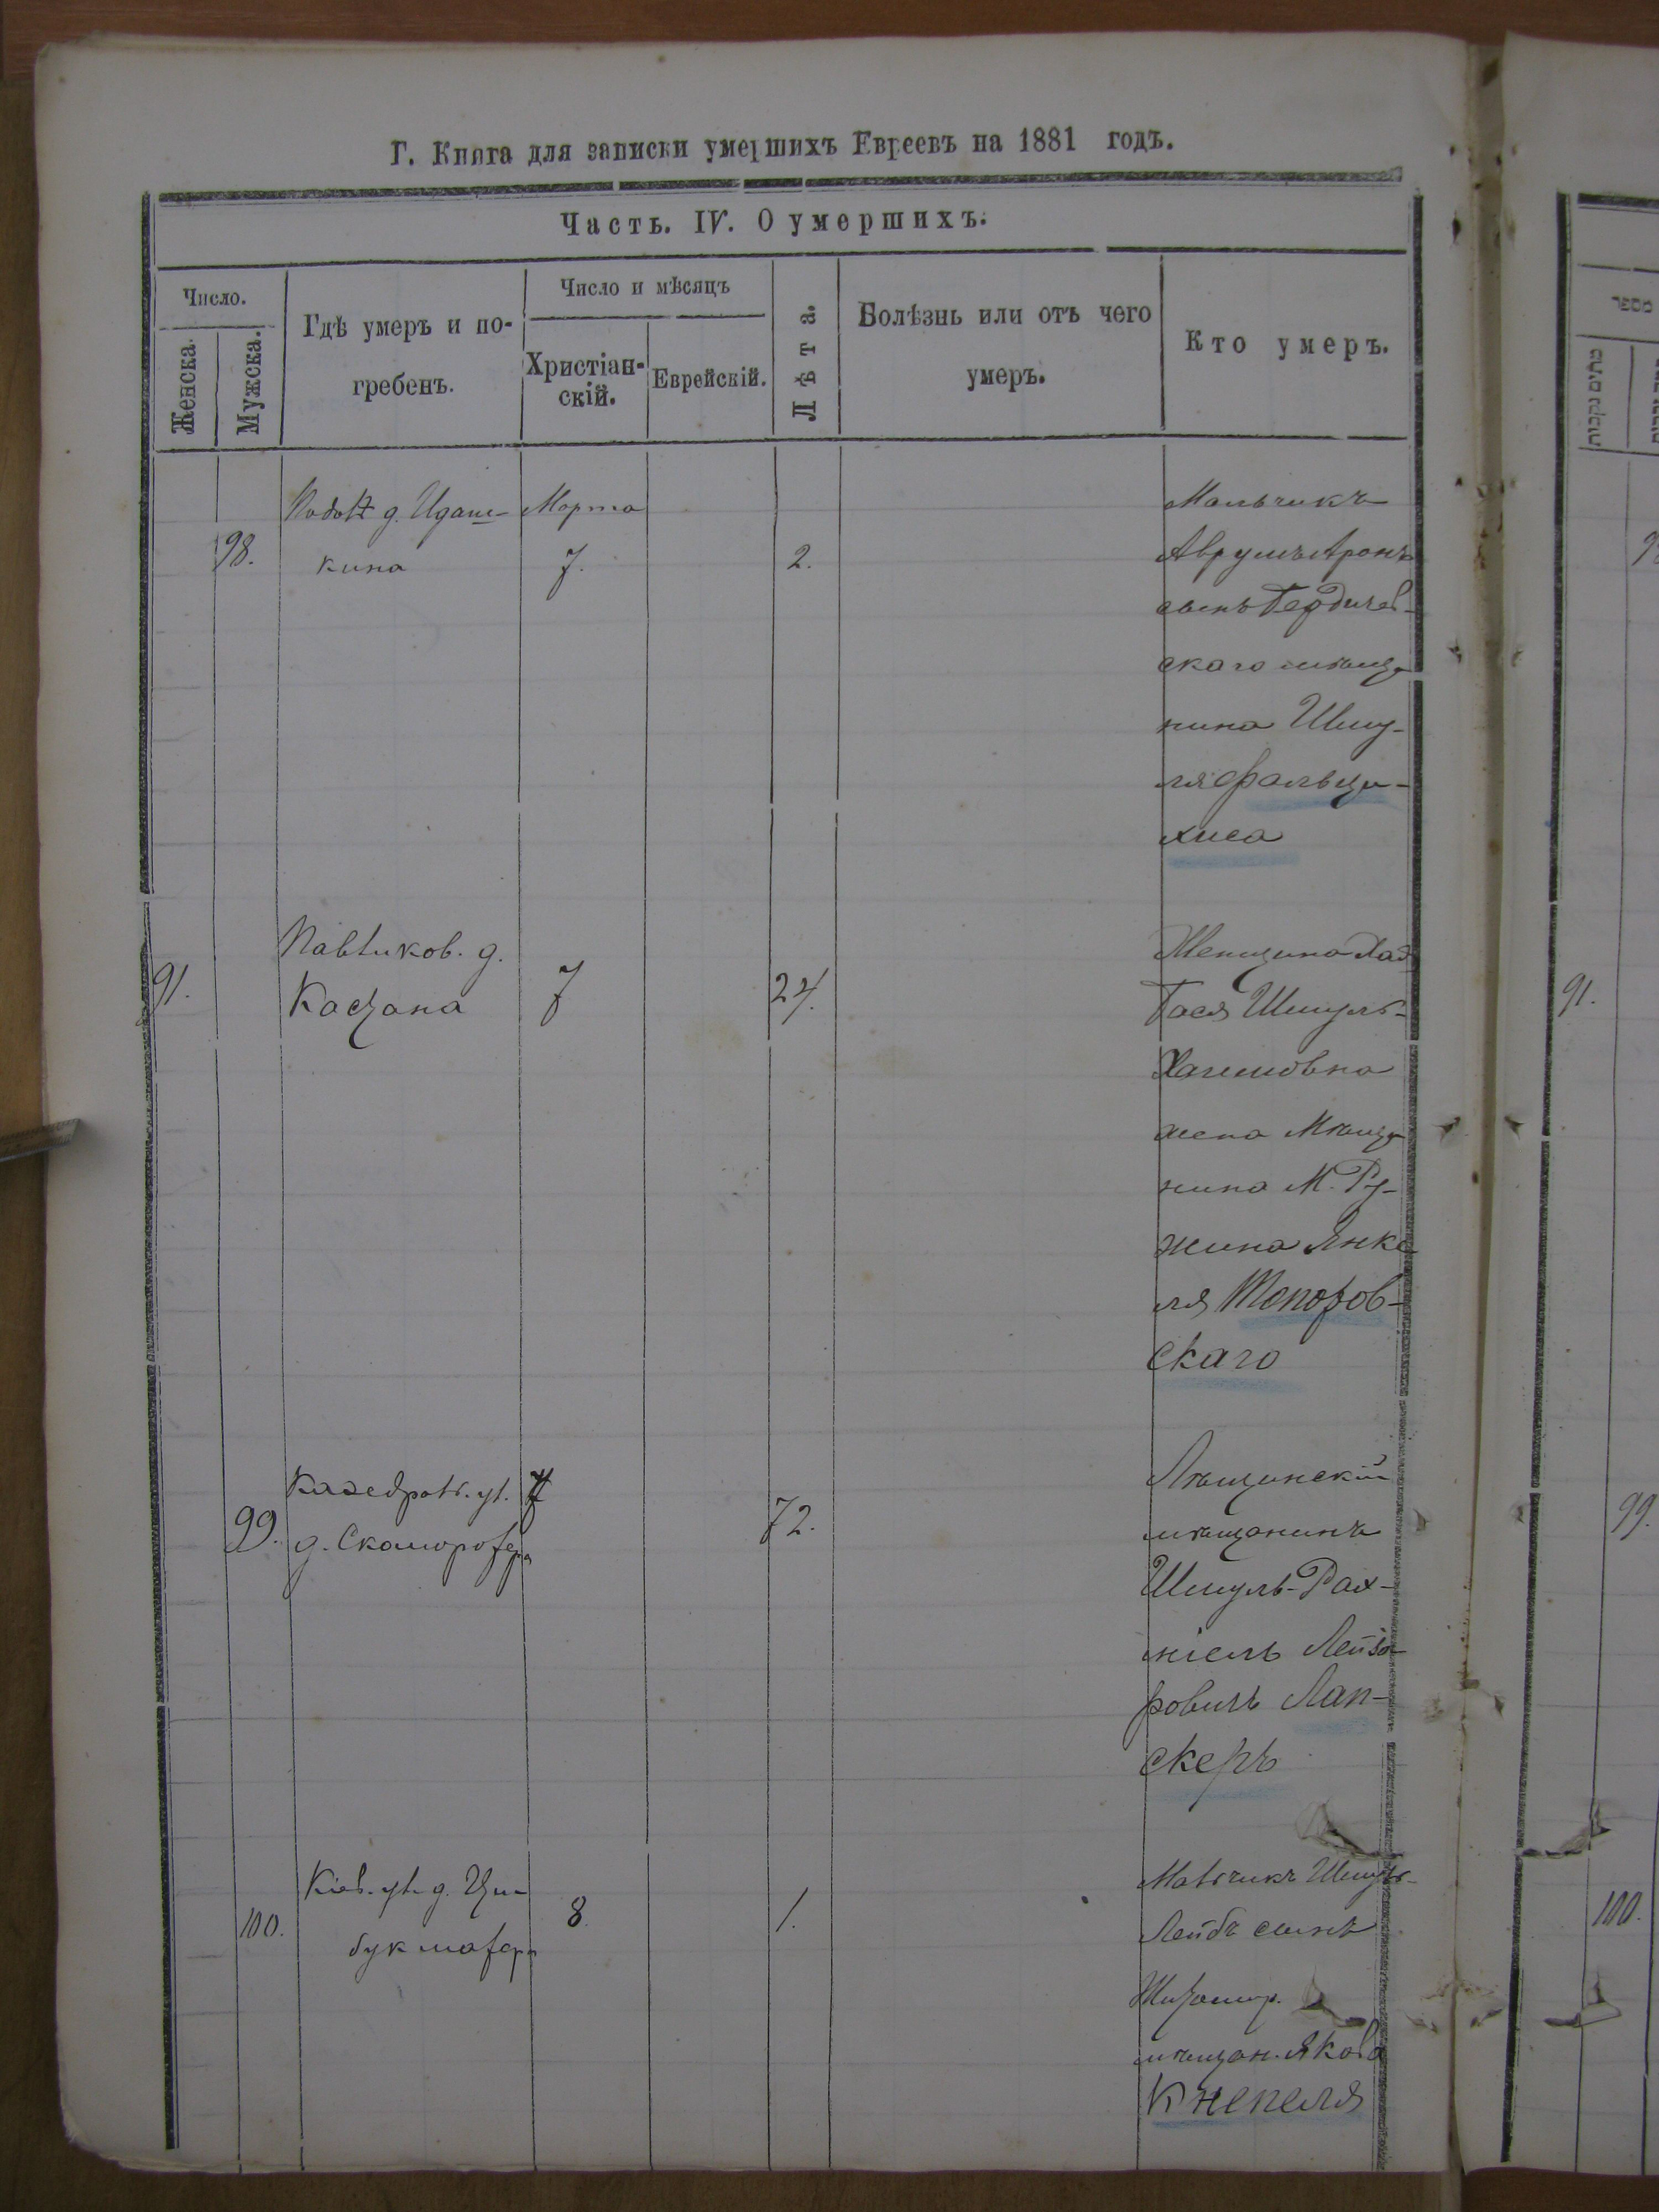 Г. Книга для записки умершихъ Евреевъ на 1881 годъ.
Часть. IV. О умершихъ.
Число.
Женска.
Мужска.
Гдѣ умеръ и по-
гребенъ.
Число и мѣсяцъ
Христіан-
скій.
Еврейскій.
Лѣта.
Болѣзнь или отъ чего
умеръ.
Кто умеръ.
98.
кина
Марта
7.
2.
Мальчикъ
Аврумъ Аронъ
сынъ Бердичев-
скаго мѣща
нина Шму-
ля Фальци-
хиса
91.
Павликов. д.
Кацана
7
24.
Женщина Хая
Бася Шмуль-
Хаимовна
жена Мѣща
нина М. Ру-
жина Янке
ля Топоров-
скаго
99.
Каѳедрал. ул.
д. Скоморовера
7
72.
мѣщанинъ
Шмуль-Рах-
міель Лейзо
ровичъ Лап-
скеръ
100.
Кіев. ул. д. Цим-
букмахера
8.
1.
Мальчикъ Шмуль-
Лейбъ сынъ
Житомир.
мѣщан. Якова
Кнепеля
מתים נקבות
91.
99.
100.